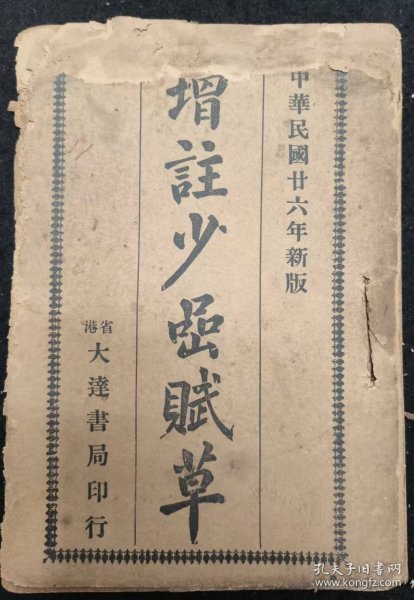 中華民國廿六年新版
增註少嵒賦草
省港
大達書局印行
孔夫子旧书网
book.kongfz.com